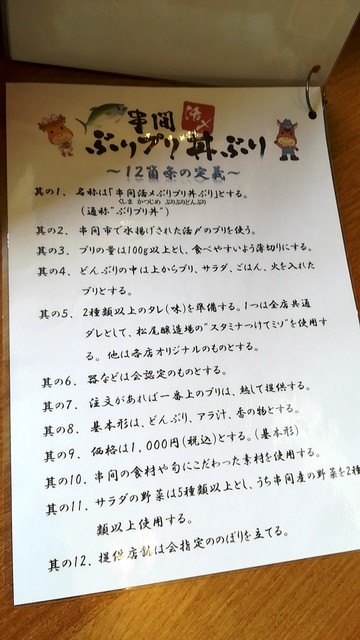 串間 活〆
ぶりプリ丼ぶり
～12箇条の定義～
其の1. 名称は「串間活〆ぶりプリ丼ぶり」とする。
くしま かつじめ ぶりぷりどんぶり
(通称"ぶりプリ丼")
其の2. 串間市で水揚げされた活〆のブリを使う。
其の3. ブリの量は100g以上とし、食べやすいよう薄切りにする。
其の4. どんぶりの中は上からブリ、サラダ、ごはん、火を入れた
ブリとする。
其の5. 2種類以上のタレ(味)を準備する。1つは全店共通
ダレとして、松尾醸造場の"スタミナつけてミソ"を使用す
る。他は各店オリジナルのものとする。
其の6. 器などは会認定のものとする。
其の7. 注文があれば一番上のブリは、熱して提供する。
其の8. 基本形は、どんぶり、アラ汁、香の物とする。
其の9. 価格は1,000円(税込)とする。(基本形)
其の10. 串間の食材や旬にこだわった素材を使用する。
其の11. サラダの野菜は5種類以上とし、うち串間産の野菜を2種
類以上使用する。
其の12. 提供店舗は会指定ののぼりを立てる。